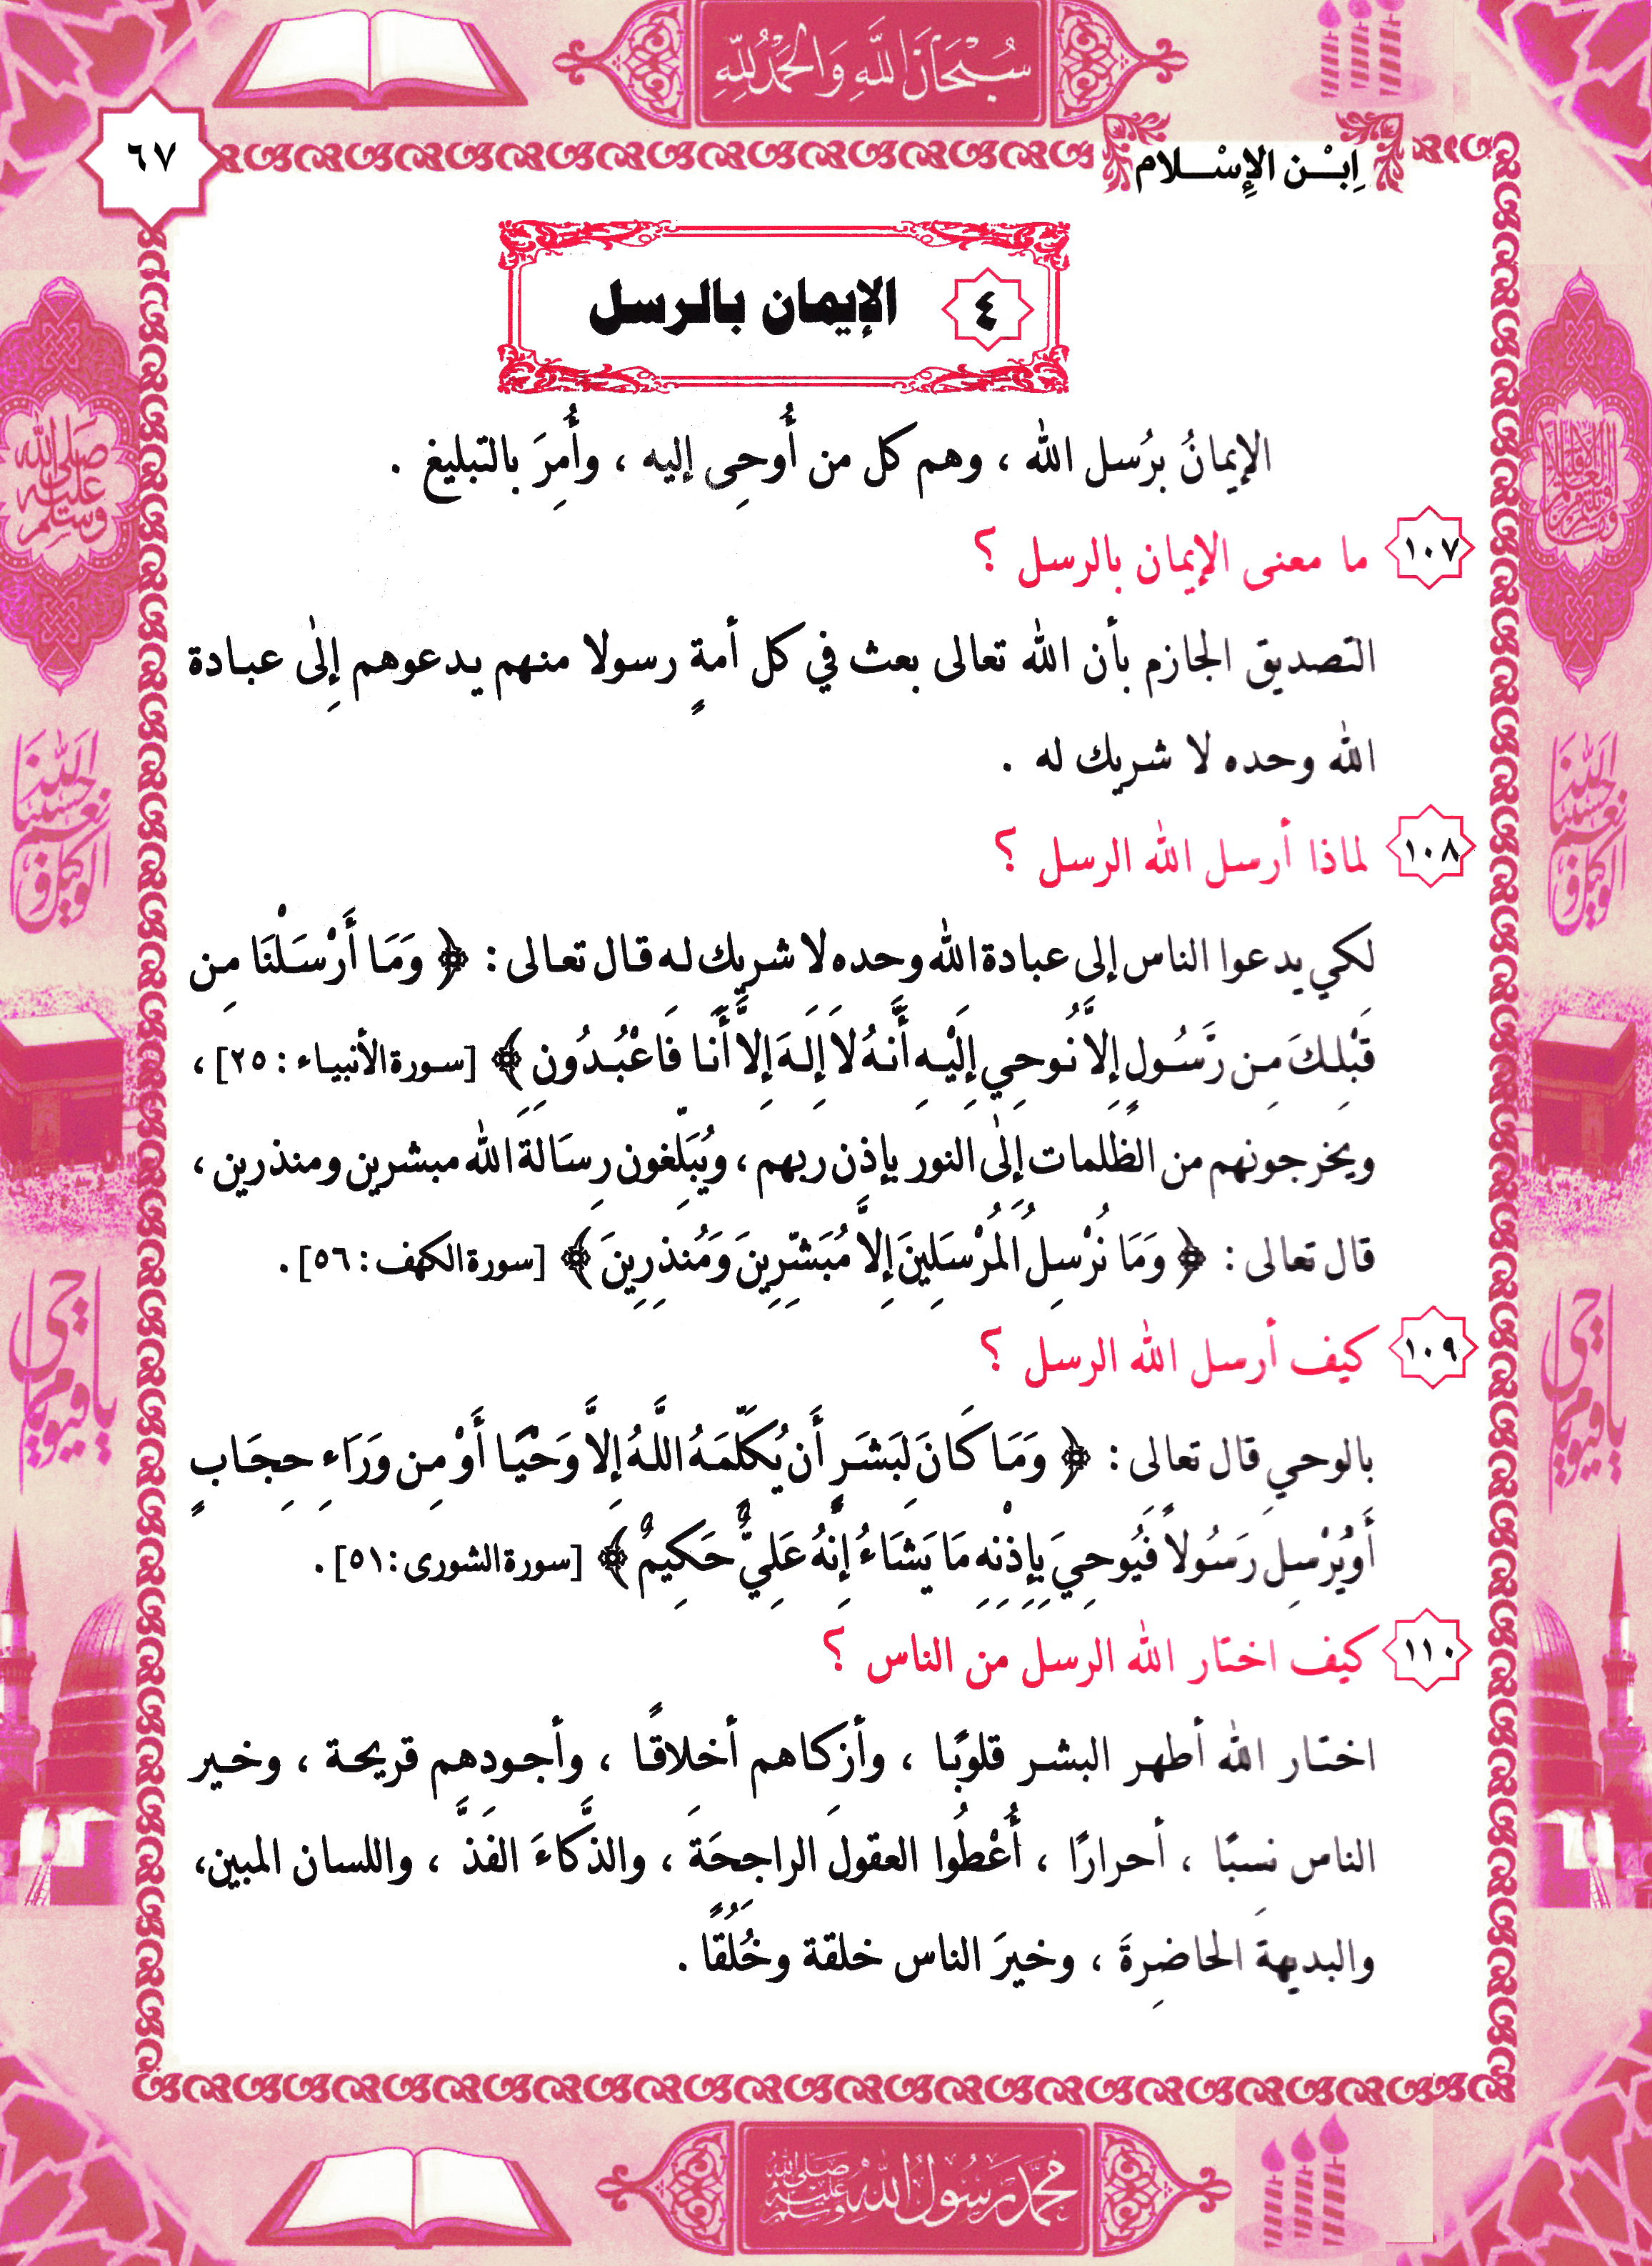 سُبْحَانَ اللَّهِ وَالْحَمْدُ لِلَّهِ
اِبْـن الإِسْـلام
٦٧
٤ الإيمان بالرسل
الإيمانُ برُسل الله ، وهم كل من أُوحِى إليه ، وأُمِرَ بالتبليغ .
١٠٧ ما معنى الإيمان بالرسل ؟
التصديق الجازم بأن الله تعالى بعث في كل أمةٍ رسولا منهم يدعوهم إِلى عبادة
الله وحده لا شريك له .
١٠٨ لماذا أرسل الله الرسل ؟
لكي يدعوا الناس إلى عبادة الله وحده لا شريك له قال تعالى : ﴿ وَمَا أَرْسَلْنَا مِن
قَبْلِكَ مِن رَّسُولٍ إِلاَّ نُوحِي إِلَيْهِ أَنَّهُ لاَ إِلَهَ إِلاَّ أَنَا فَاعْبُدُونِ ﴾ [سورة الأنبياء : ٢٥] ،
ويخرجونهم من الظلمات إِلى النور بإذن ربهم ، ويُبَلِّغون رِسَالةَ الله مبشرين ومنذرين ،
قال تعالى : ﴿ وَمَا نُرْسِلُ الْمُرْسَلِينَ إِلاَّ مُبَشِّرِينَ وَمُنذِرِينَ ﴾ [سورة الكهف : ٥٦] .
١٠٩ كيف أرسل الله الرسل ؟
بالوحيِ قال تعالى : ﴿ وَمَا كَانَ لِبَشَرٍ أَن يُكَلِّمَهُ اللَّهُ إِلاَّ وَحْيًا أَوْ مِن وَرَاءِ حِجَابٍ
أَوْ يُرْسِلَ رَسُولاً فَيُوحِيَ بِإِذْنِهِ مَا يَشَاءُ إِنَّهُ عَلِيٌّ حَكِيمٌ ﴾ [سورة الشورى : ٥١] .
١١٠ كيف اختار الله الرسل من الناس ؟
اختار الله أطهر البشر قلوبًا ، وأزكاهم أخلاقًا ، وأجودهم قريحة ، وخير
الناس نسبًا ، أحرارًا ، أُعْطُوا العقولَ الراجحَةَ ، والذَّكاءَ الفَذَّ ، واللسان المبين ،
والبديهةَ الحاضِرةَ ، وخيرَ الناس خلقة وخُلُقًا .
صلى الله عليه وسلم
حسبنا الله ونعم الوكيل
حسبنا الله ونعم الوكيل
يا حي يا قيوم
يا حي يا قيوم
محمد رسول الله صلى الله عليه وسلم